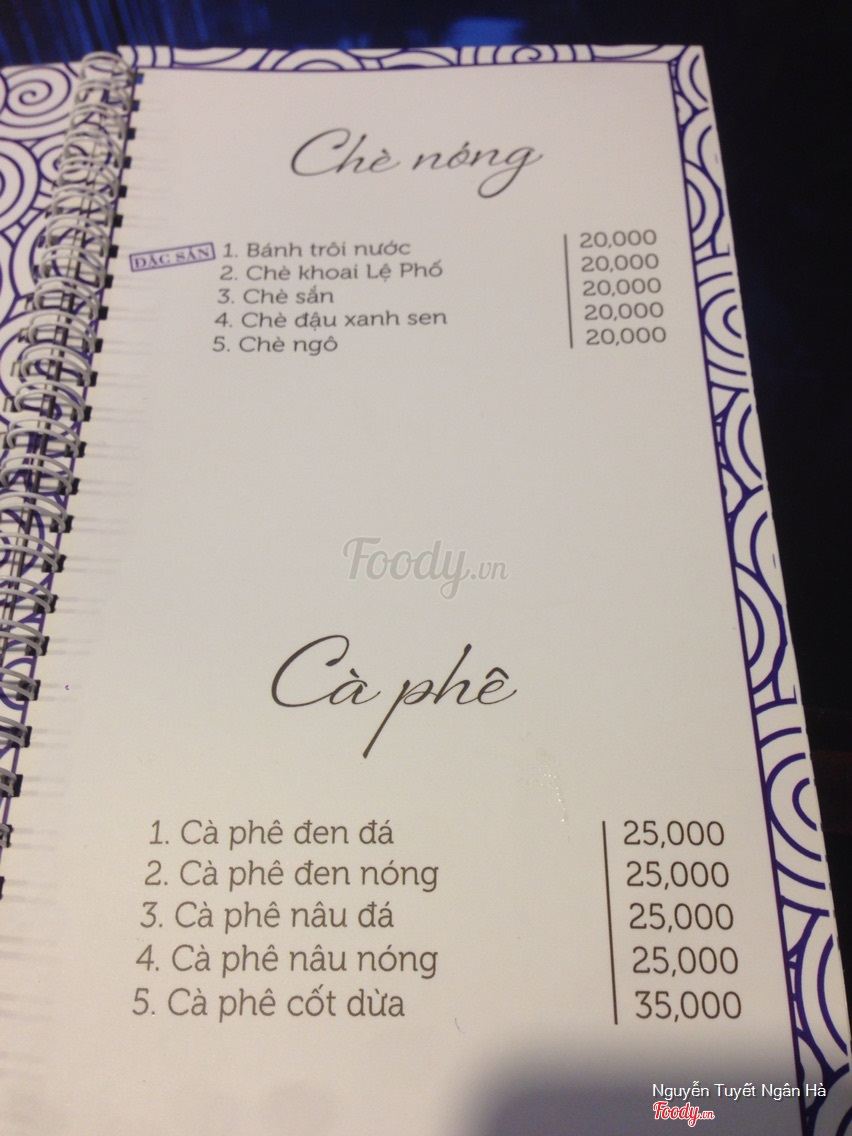 Chè nóng
ĐẶC SẢN 1. Bánh trôi nước 20,000
2. Chè khoai Lệ Phố 20,000
3. Chè sắn 20,000
4. Chè đậu xanh sen 20,000
5. Chè ngô 20,000
Foody.vn
Cà phê
1. Cà phê đen đá 25,000
2. Cà phê đen nóng 25,000
3. Cà phê nâu đá 25,000
4. Cà phê nâu nóng 25,000
5. Cà phê cốt dừa 35,000
Nguyễn Tuyết Ngân Hà
Foody.vn